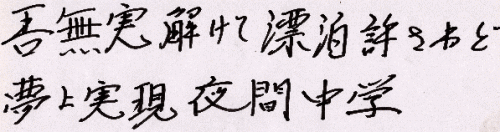 吾無実解けて漂泊許されど
夢と実現夜間中学